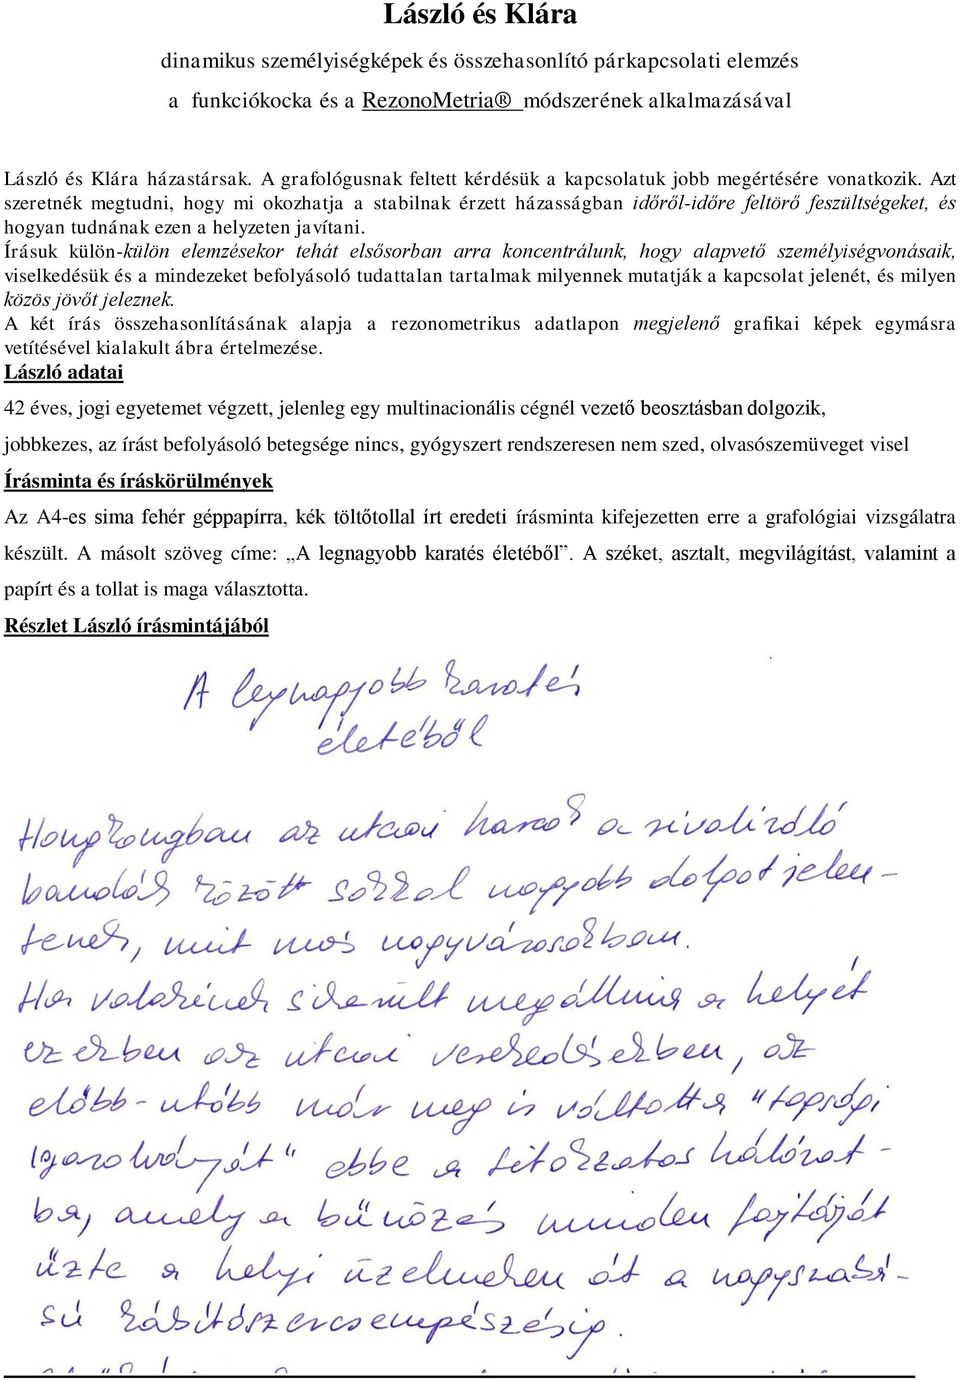 László és Klára
dinamikus személyiségképek és összehasonlító párkapcsolati elemzés
a funkciókocka és a RezonoMetria® módszerének alkalmazásával
László és Klára házastársak. A grafológusnak feltett kérdésük a kapcsolatuk jobb megértésére vonatkozik. Azt
szeretnék megtudni, hogy mi okozhatja a stabilnak érzett házasságban időről-időre feltörő feszültségeket, és
hogyan tudnának ezen a helyzeten javítani.
Írásuk külön-külön elemzésekor tehát elsősorban arra koncentrálunk, hogy alapvető személyiségvonásaik,
viselkedésük és a mindezeket befolyásoló tudattalan tartalmak milyennek mutatják a kapcsolat jelenét, és milyen
közös jövőt jeleznek.
A két írás összehasonlításának alapja a rezonometrikus adatlapon megjelenő grafikai képek egymásra
vetítésével kialakult ábra értelmezése.
László adatai
42 éves, jogi egyetemet végzett, jelenleg egy multinacionális cégnél vezető beosztásban dolgozik,
jobbkezes, az írást befolyásoló betegsége nincs, gyógyszert rendszeresen nem szed, olvasószemüveget visel
Írásminta és íráskörülmények
Az A4-es sima fehér géppapírra, kék töltőtollal írt eredeti írásminta kifejezetten erre a grafológiai vizsgálatra
készült. A másolt szöveg címe: „A legnagyobb karatés életéből”. A széket, asztalt, megvilágítást, valamint a
papírt és a tollat is maga választotta.
Részlet László írásmintájából
A legnagyobb karatés
életéből
Hongkongban az utcai harcok a rivalizáló
bandák között sokkal nagyobb dolgot jelen-
tenek, mint más nagyvárosokban.
Ha valakinek sikerült megállnia a helyét
ezekben az utcai veszekedésekben, az
előbb-utóbb már meg is váltotta "tagsági
igazolványát" ebbe a titokzatos hálózat-
ba, amely a bűnözés minden fajtáját
űzte a helyi üzelmeken át a nagyszabá-
sú kábítószercsempészésig.